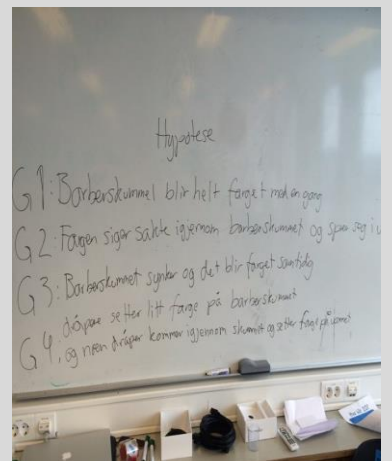 Hypotese
G1: Barberskummet blir helt farget med en gang
G2: Fargen siger sakte igjennom barberskummet og sprer seg i
G3: Barberskummet synker og det blir farget samtidig
G4, dråpene setter litt farge på barberskummet
og noen dråper kommer igjennom skummet og setter farge på vannet